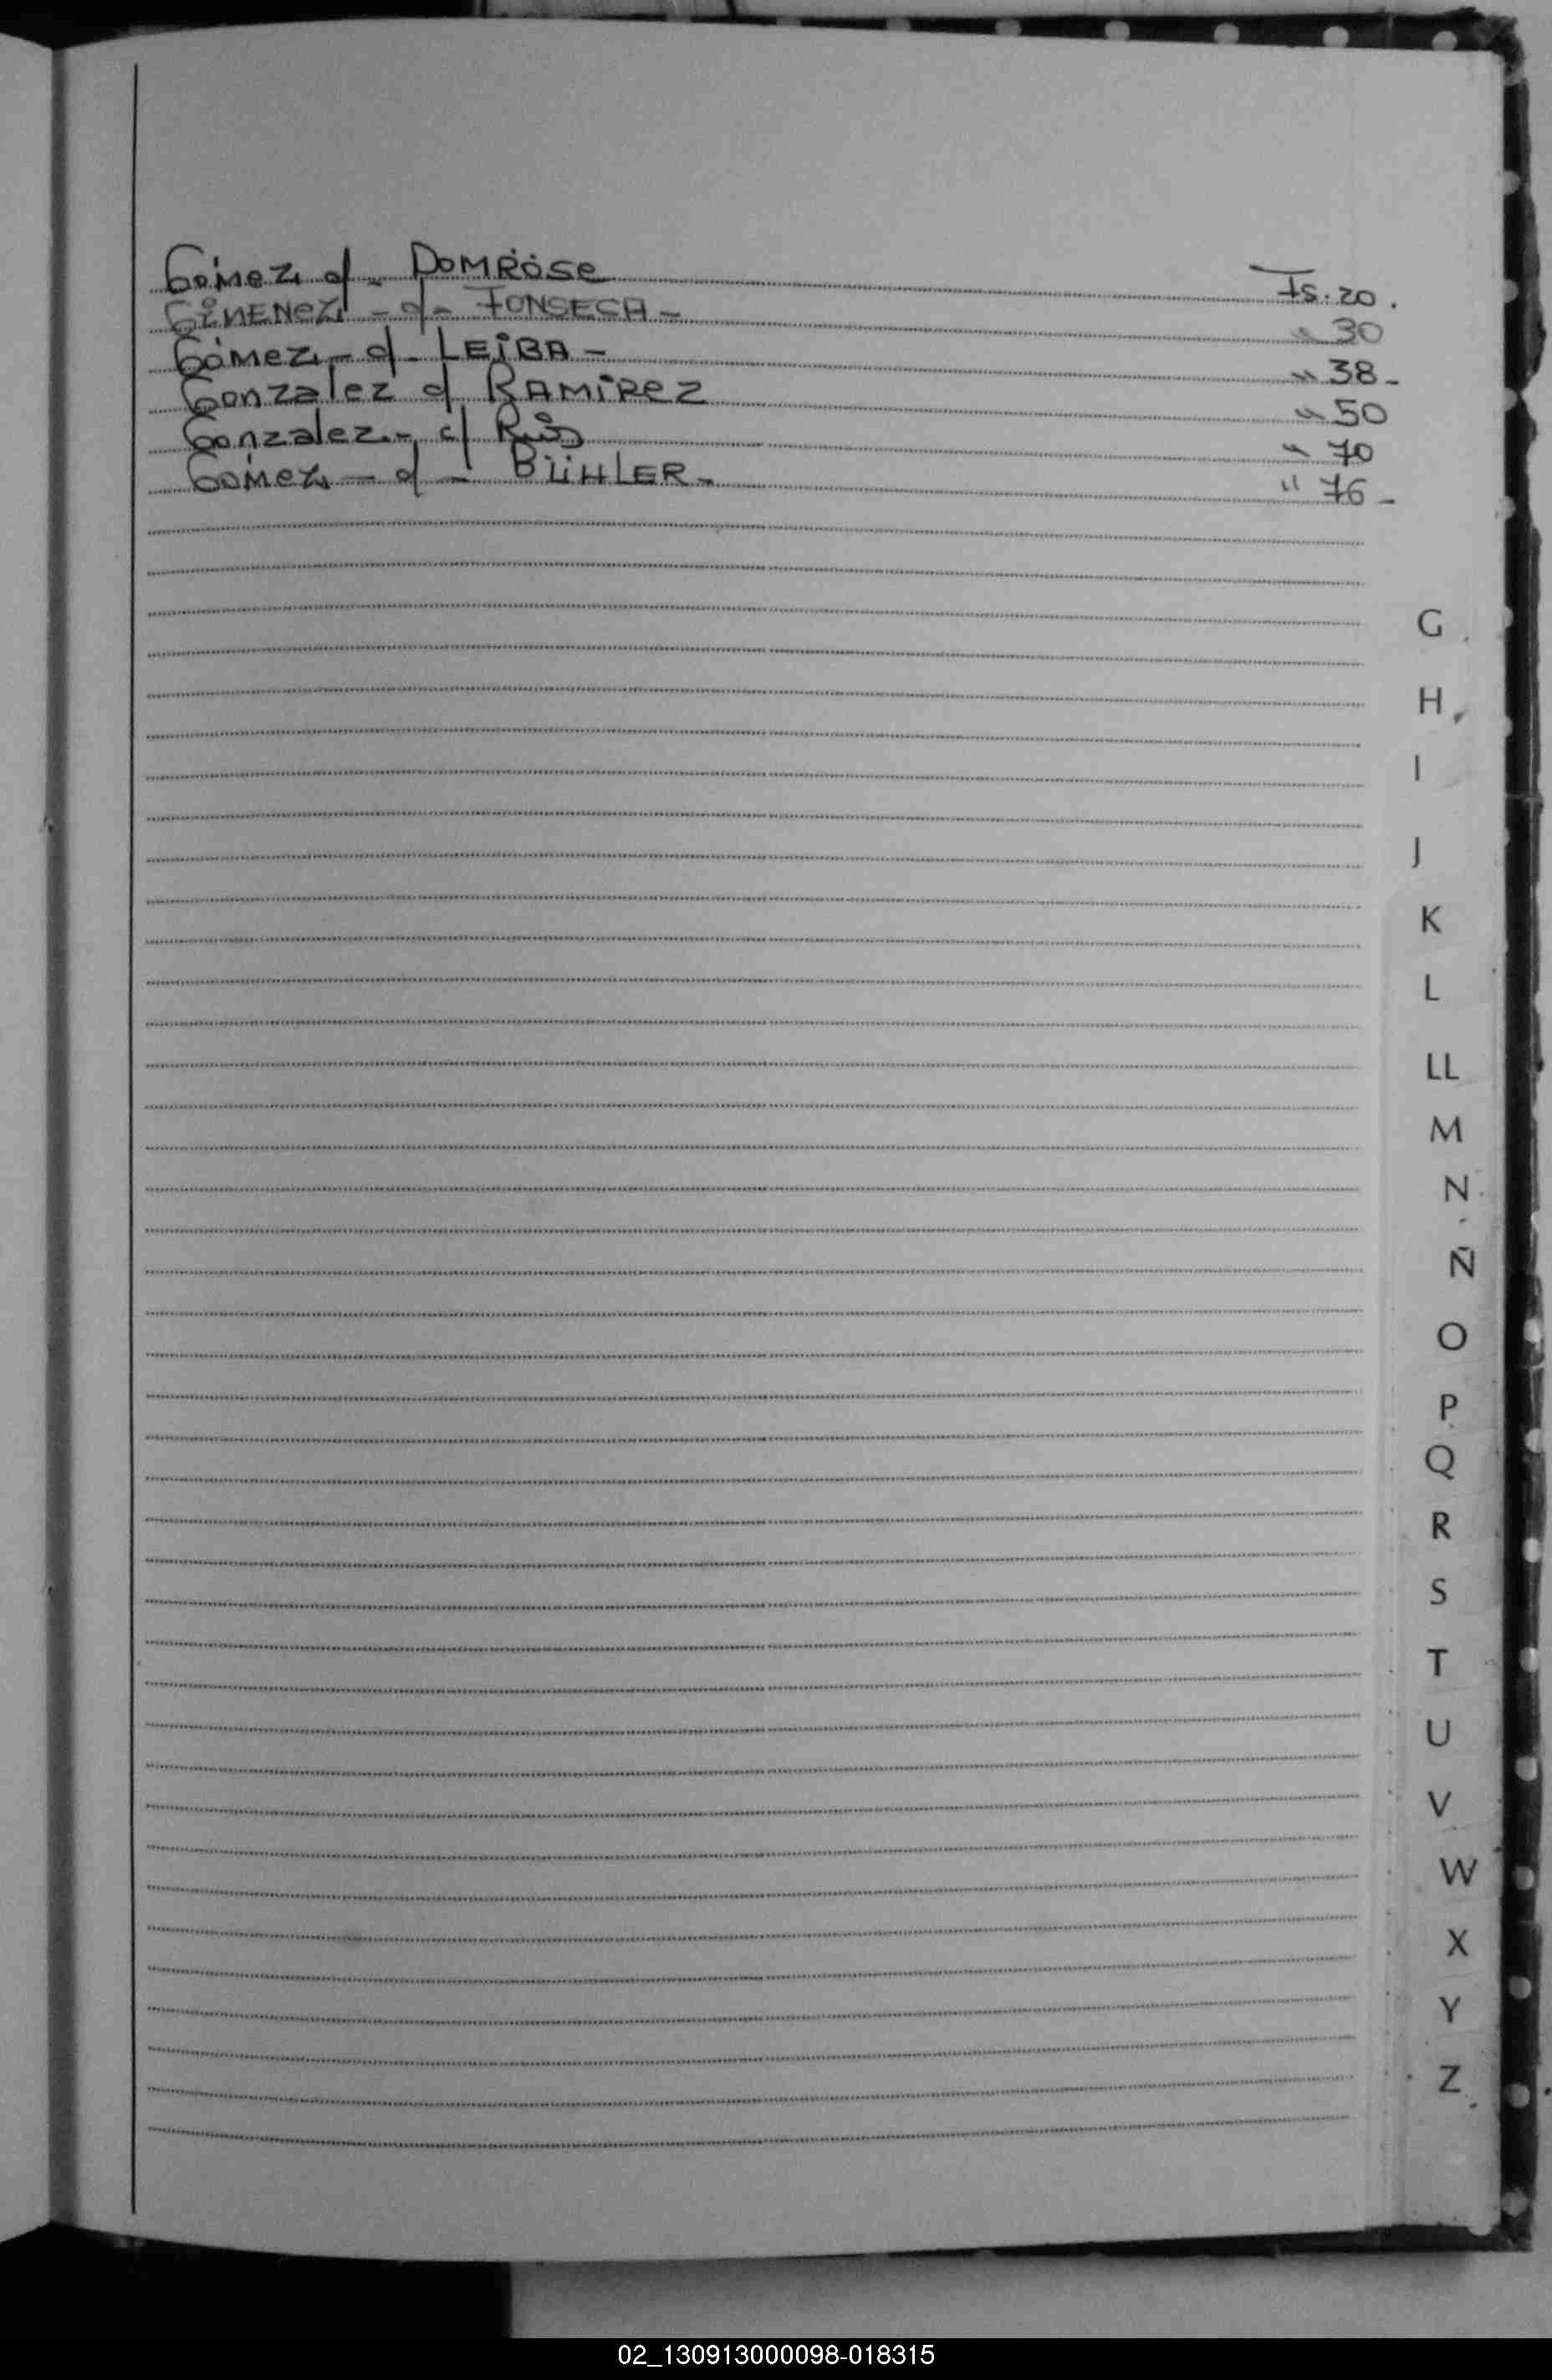 Gómez c/ - DOMRÖSE Fs. 20.
GIMENEZ - c/ - FONSECA - " 30
Gómez - c/ - LEIBA - " 38 -
Gonzalez c/ RAMIREZ " 50
Gonzalez - c/ Ruis " 70
Gómez - c/ - BÜHLER - " 76 -
G
H
I
J
K
L
LL
M
N
Ñ
O
P
Q
R
S
T
U
V
W
X
Y
Z
02_130913000098-018315